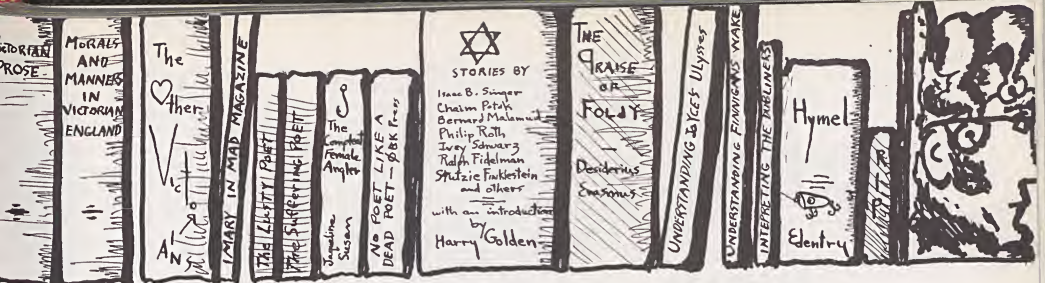 VICTORIAN
PROSE
MORALS
AND
MANNERS
IN
VICTORIAN
ENGLAND
The
Other
Vict
IAN
IMARY IN MAD MAGAZINE
The LUSTY POET
The Suffering POET
The
Compleat
Female
Angler
Jaqueline
Susan
NO POET LIKE A
DEAD POET - ØBK Press
STORIES BY
Isaac B. Singer
Chaim Potok
Bernard Malamud
Philip Roth
Ivey Schwarz
Ralph Fidelman
Stutzie Finklestein
and others
with an introduction
by
Harry Golden
THE
PRAISE
OF
FOLLY
Desiderius
Erasmus
UNDERSTANDING JOYCE'S Ulysses
UNDERSTANDING FINNIGANS WAKE
INTEPRETING THE DUBLINERS
Hymel
Edentry